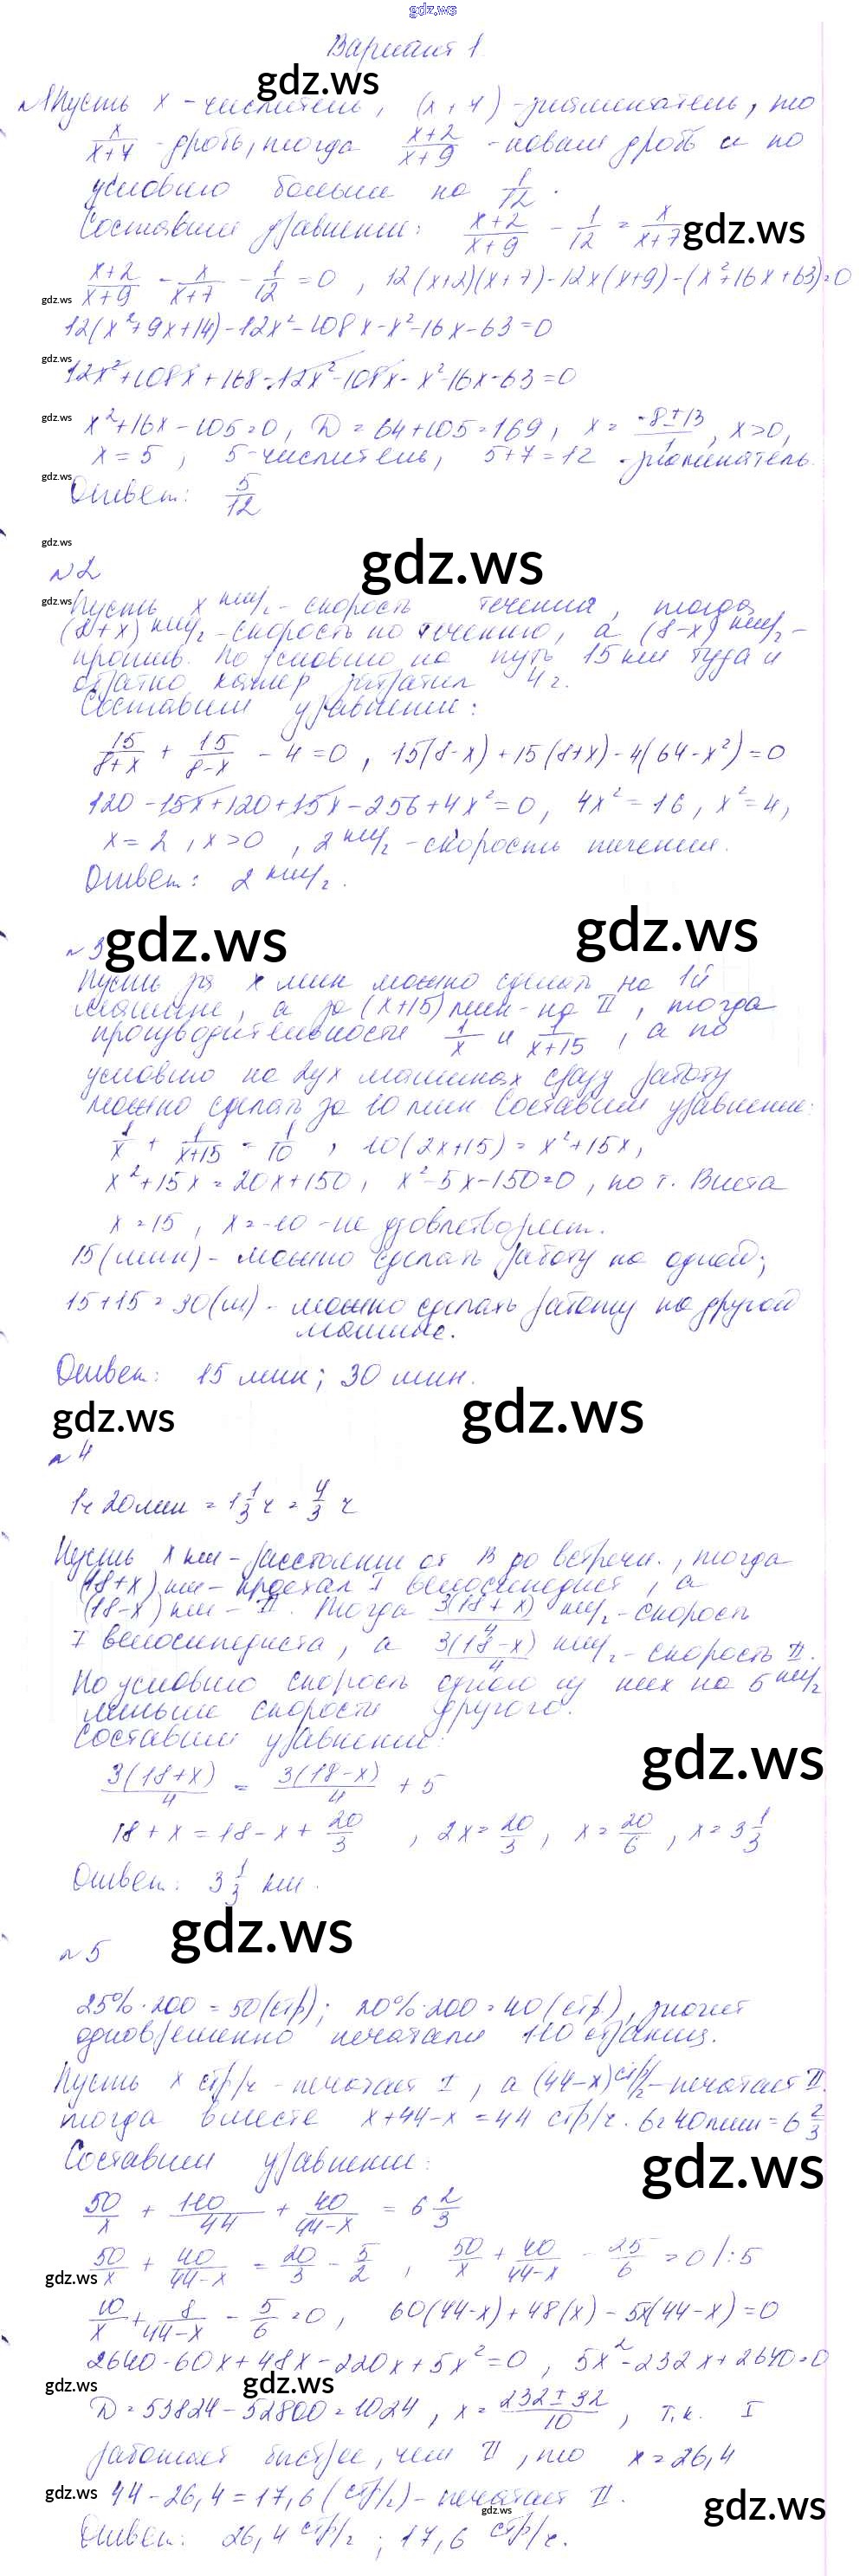 gdz.ws
Вариант 1
№1 Пусть x - числитель, (x+7) - знаменатель, то
x/(x+7) - дробь, тогда (x+2)/(x+9) - новая дробь и по
условию больше на 1/12.
Составим уравнение: (x+2)/(x+9) - 1/12 = x/(x+7)
(x+2)/(x+9) - x/(x+7) - 1/12 = 0, 12(x+2)(x+7) - 12x(x+9) - (x²+16x+63)=0
12(x²+9x+14) - 12x² - 108x - x² - 16x - 63 = 0
12x²+108x+168-12x²-108x-x²-16x-63=0
x²+16x-105=0, D=64+105=169, x= (-8±13)/1, x>0,
x=5, 5-числитель, 5+7=12 - знаменатель.
Ответ: 5/12
№2
Пусть x км/ч - скорость течения, тогда
(8+x) км/ч - скорость по течению, а (8-x) км/ч -
против. По условию на путь 15 км туда и
обратно катер затратил 4 ч.
Составим уравнение:
15/(8+x) + 15/(8-x) - 4 = 0, 15(8-x)+15(8+x)-4(64-x²)=0
120-15x+120+15x-256+4x²=0, 4x²=16, x²=4,
x=2, x>0, 2 км/ч - скорость течения.
Ответ: 2 км/ч.
№3
Пусть за x мин можно сделать на 1й
машине, а за (x+15) мин - на II, тогда
производительности 1/x и 1/(x+15), а по
условию на двух машинах сразу работу
можно сделать за 10 мин. Составим уравнение:
1/x + 1/(x+15) = 1/10, 10(2x+15)=x²+15x,
x²+15x=20x+150, x²-5x-150=0, по т. Виета
x=15, x=-10 - не удовлетворяет.
15(мин) - можно сделать работу на одной;
15+15=30(м) - можно сделать работу на другой
машине.
Ответ: 15 мин; 30 мин.
№4
1ч 20мин = 1 1/3 ч = 4/3 ч
Пусть x км - расстояние от B до встречи, тогда
(18+x) км - проехал I велосипедист, а
(18-x) км - II. Тогда 3(18+x)/4 км/ч - скорость
I велосипедиста, а 3(18-x)/4 км/ч - скорость II.
По условию скорость одного из них на 5 км/ч
меньше скорости другого.
Составим уравнение:
3(18+x)/4 = 3(18-x)/4 + 5
18+x=18-x+20/3, 2x=20/3, x=20/6, x=3 1/3
Ответ: 3 1/3 км.
№5
25%·200=50(стр); 20%·200=40(стр), значит
одновременно печатали 110 страниц.
Пусть x стр/ч - печатает I, а (44-x) стр/ч - печатает II.
тогда вместе x+44-x=44 стр/ч. 6ч 40мин = 6 2/3
Составим уравнение:
50/x + 110/44 + 40/(44-x) = 6 2/3
50/x + 40/(44-x) = 20/3 - 5/2, 50/x + 40/(44-x) - 25/6 = 0 /:5
10/x + 8/(44-x) - 5/6 = 0, 60(44-x)+48(x)-5x(44-x)=0
2640-60x+48x-220x+5x²=0, 5x²-232x+2640=0
D=53824-52800=1024, x= (232±32)/10, т.к. I
работает быстрее, чем II, то x=26,4
44-26,4=17,6 (стр/ч) - печатает II.
Ответ: 26,4 стр/ч; 17,6 стр/ч.